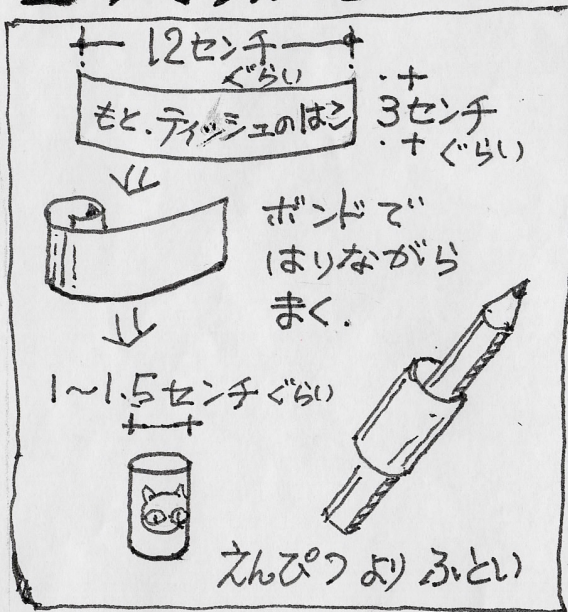 12センチ
ぐらい
もと.ティッシュのはこ
3センチ
ぐらい
ボンドで
はりながら
まく.
1〜1.5センチぐらい
えんぴつよりふとい